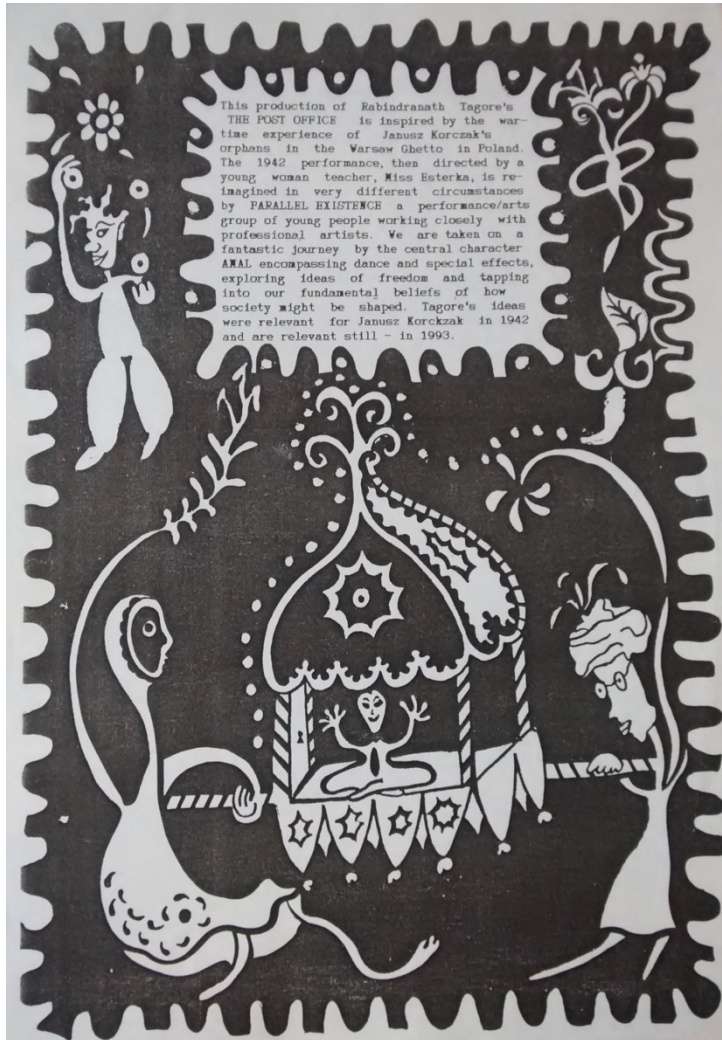 This production of Rabindranath Tagore's
THE POST OFFICE is inspired by the war-
time experience of Janusz Korczak's
orphans in the Warsaw Ghetto in Poland.
The 1942 performance, then directed by a
young woman teacher, Miss Esterka, is re-
imagined in very different circumstances
by PARALLEL EXISTENCE a performance/arts
group of young people working closely with
professional artists. We are taken on a
fantastic journey by the central character
AMAL encompassing dance and special effects,
exploring ideas of freedom and tapping
into our fundamental beliefs of how
society might be shaped. Tagore's ideas
were relevant for Janusz Korckzak in 1942
and are relevant still - in 1993.